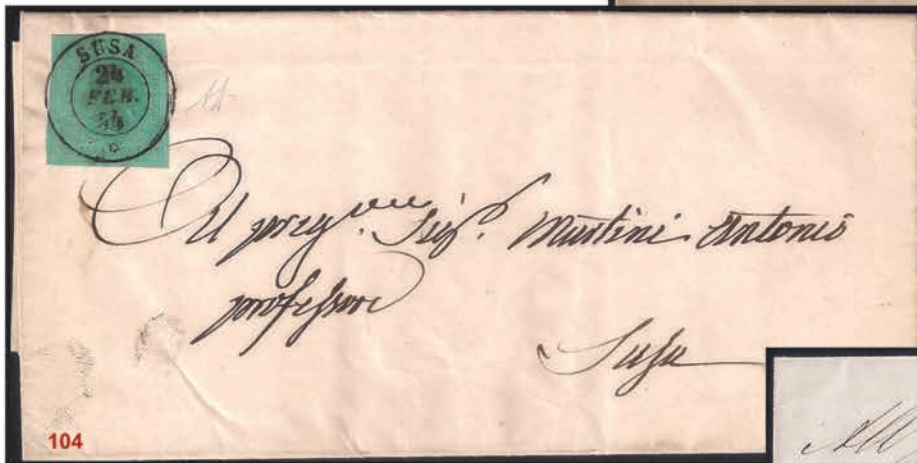 SUSA
24
FEB.
54
Al preg.mo Sig.r Martini Antonio
professore
Susa
104
All